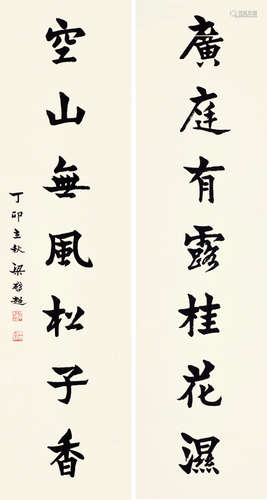 廣庭有露桂花濕
空山無風松子香
丁卯立秋梁啓超